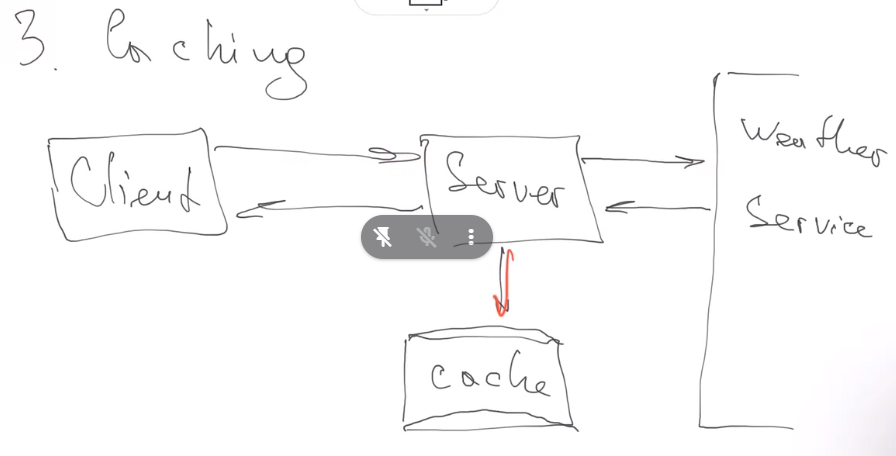 3. Caching
Client
Server
Weather
Service
cache